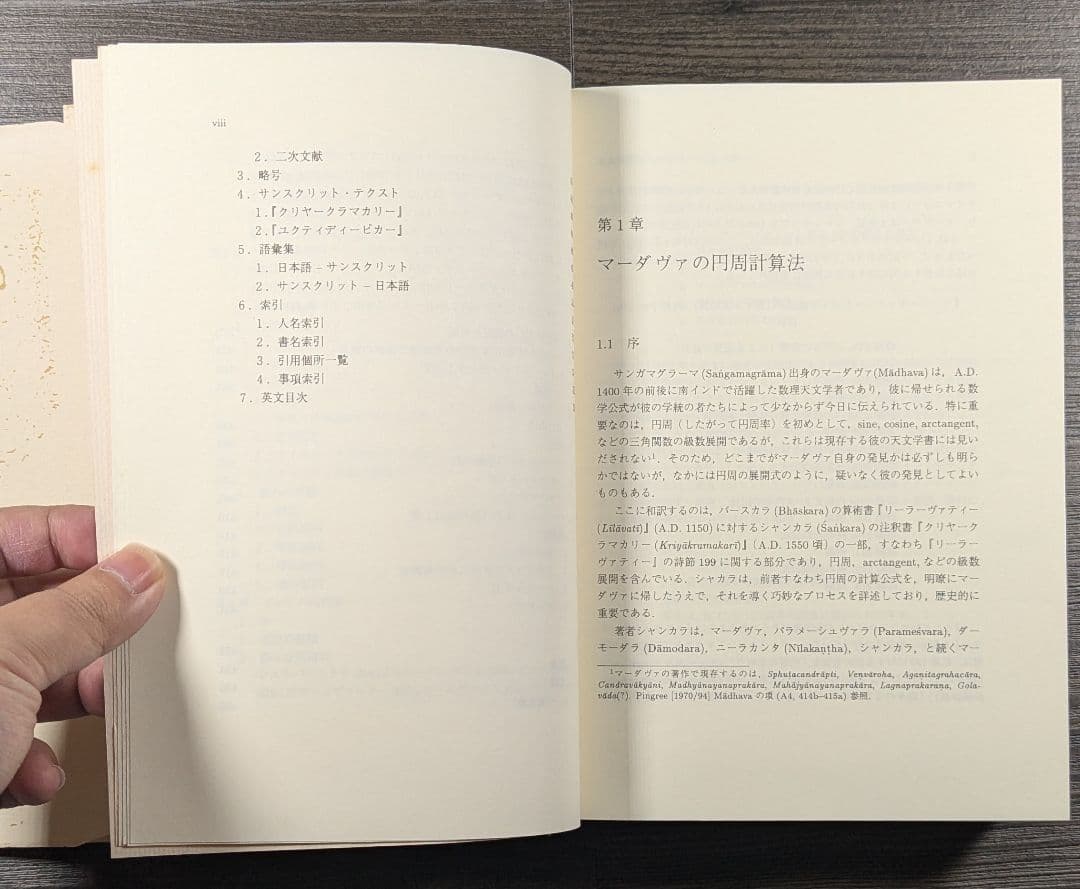 viii
2．二次文献
3．略号
4．サンスクリット・テクスト
1．『クリヤークラマカリー』
2．『ユクティディーピカー』
5．語彙集
1．日本語－サンスクリット
2．サンスクリット－日本語
6．索引
1．人名索引
2．書名索引
3．引用個所一覧
4．事項索引
7．英文目次
第1章
マーダヴァの円周計算法
1.1 序
サンガマグラーマ (Saṅgamagrāma) 出身のマーダヴァ(Mādhava) は，A.D.
1400 年の前後に南インドで活躍した数理天文学者であり，彼に帰せられる数
学公式が彼の学統の者たちによって少なからず今日に伝えられている．特に重
要なのは，円周（したがって円周率）を初めとして，sine, cosine, arctangent,
などの三角関数の級数展開であるが，これらは現存する彼の天文学書には見い
だされない¹．そのため，どこまでがマーダヴァ自身の発見かは必ずしも明ら
かではないが，なかには円周の展開式のように，疑いなく彼の発見としてよい
ものもある．
ここに和訳するのは，バースカラ (Bhāskara) の算術書『リーラーヴァティー
(Līlāvatī)』(A.D. 1150) に対するシャンカラ (Śaṅkara) の注釈書『クリヤーク
ラマカリー (Kriyākramakarī)』（A.D. 1550 頃）の一部，すなわち『リーラー
ヴァティー』の詩節 199 に関する部分であり，円周，arctangent, などの級数
展開を含んでいる．シャカラは，前者すなわち円周の計算公式を，明瞭にマー
ダヴァに帰したうえで，それを導く巧妙なプロセスを詳述しており，歴史的に
重要である．
著者シャンカラは，マーダヴァ，パラメーシュヴァラ (Parameśvara), ダー
モーダラ (Dāmodara), ニーラカンタ (Nīlakaṇṭha), シャンカラ，と続くマー
¹マーダヴァの著作で現存するのは，Sphuṭacandrāpti, Veṇvāroha, Agaṇitagrahacāra,
Candravākyāni, Madhyānayanaprakāra, Mahājyānayanaprakāra, Lagnaprakaraṇa, Gola-
vāda(?). Pingree [1970/94] Mādhava の項 (A4, 414b–415a) 参照．